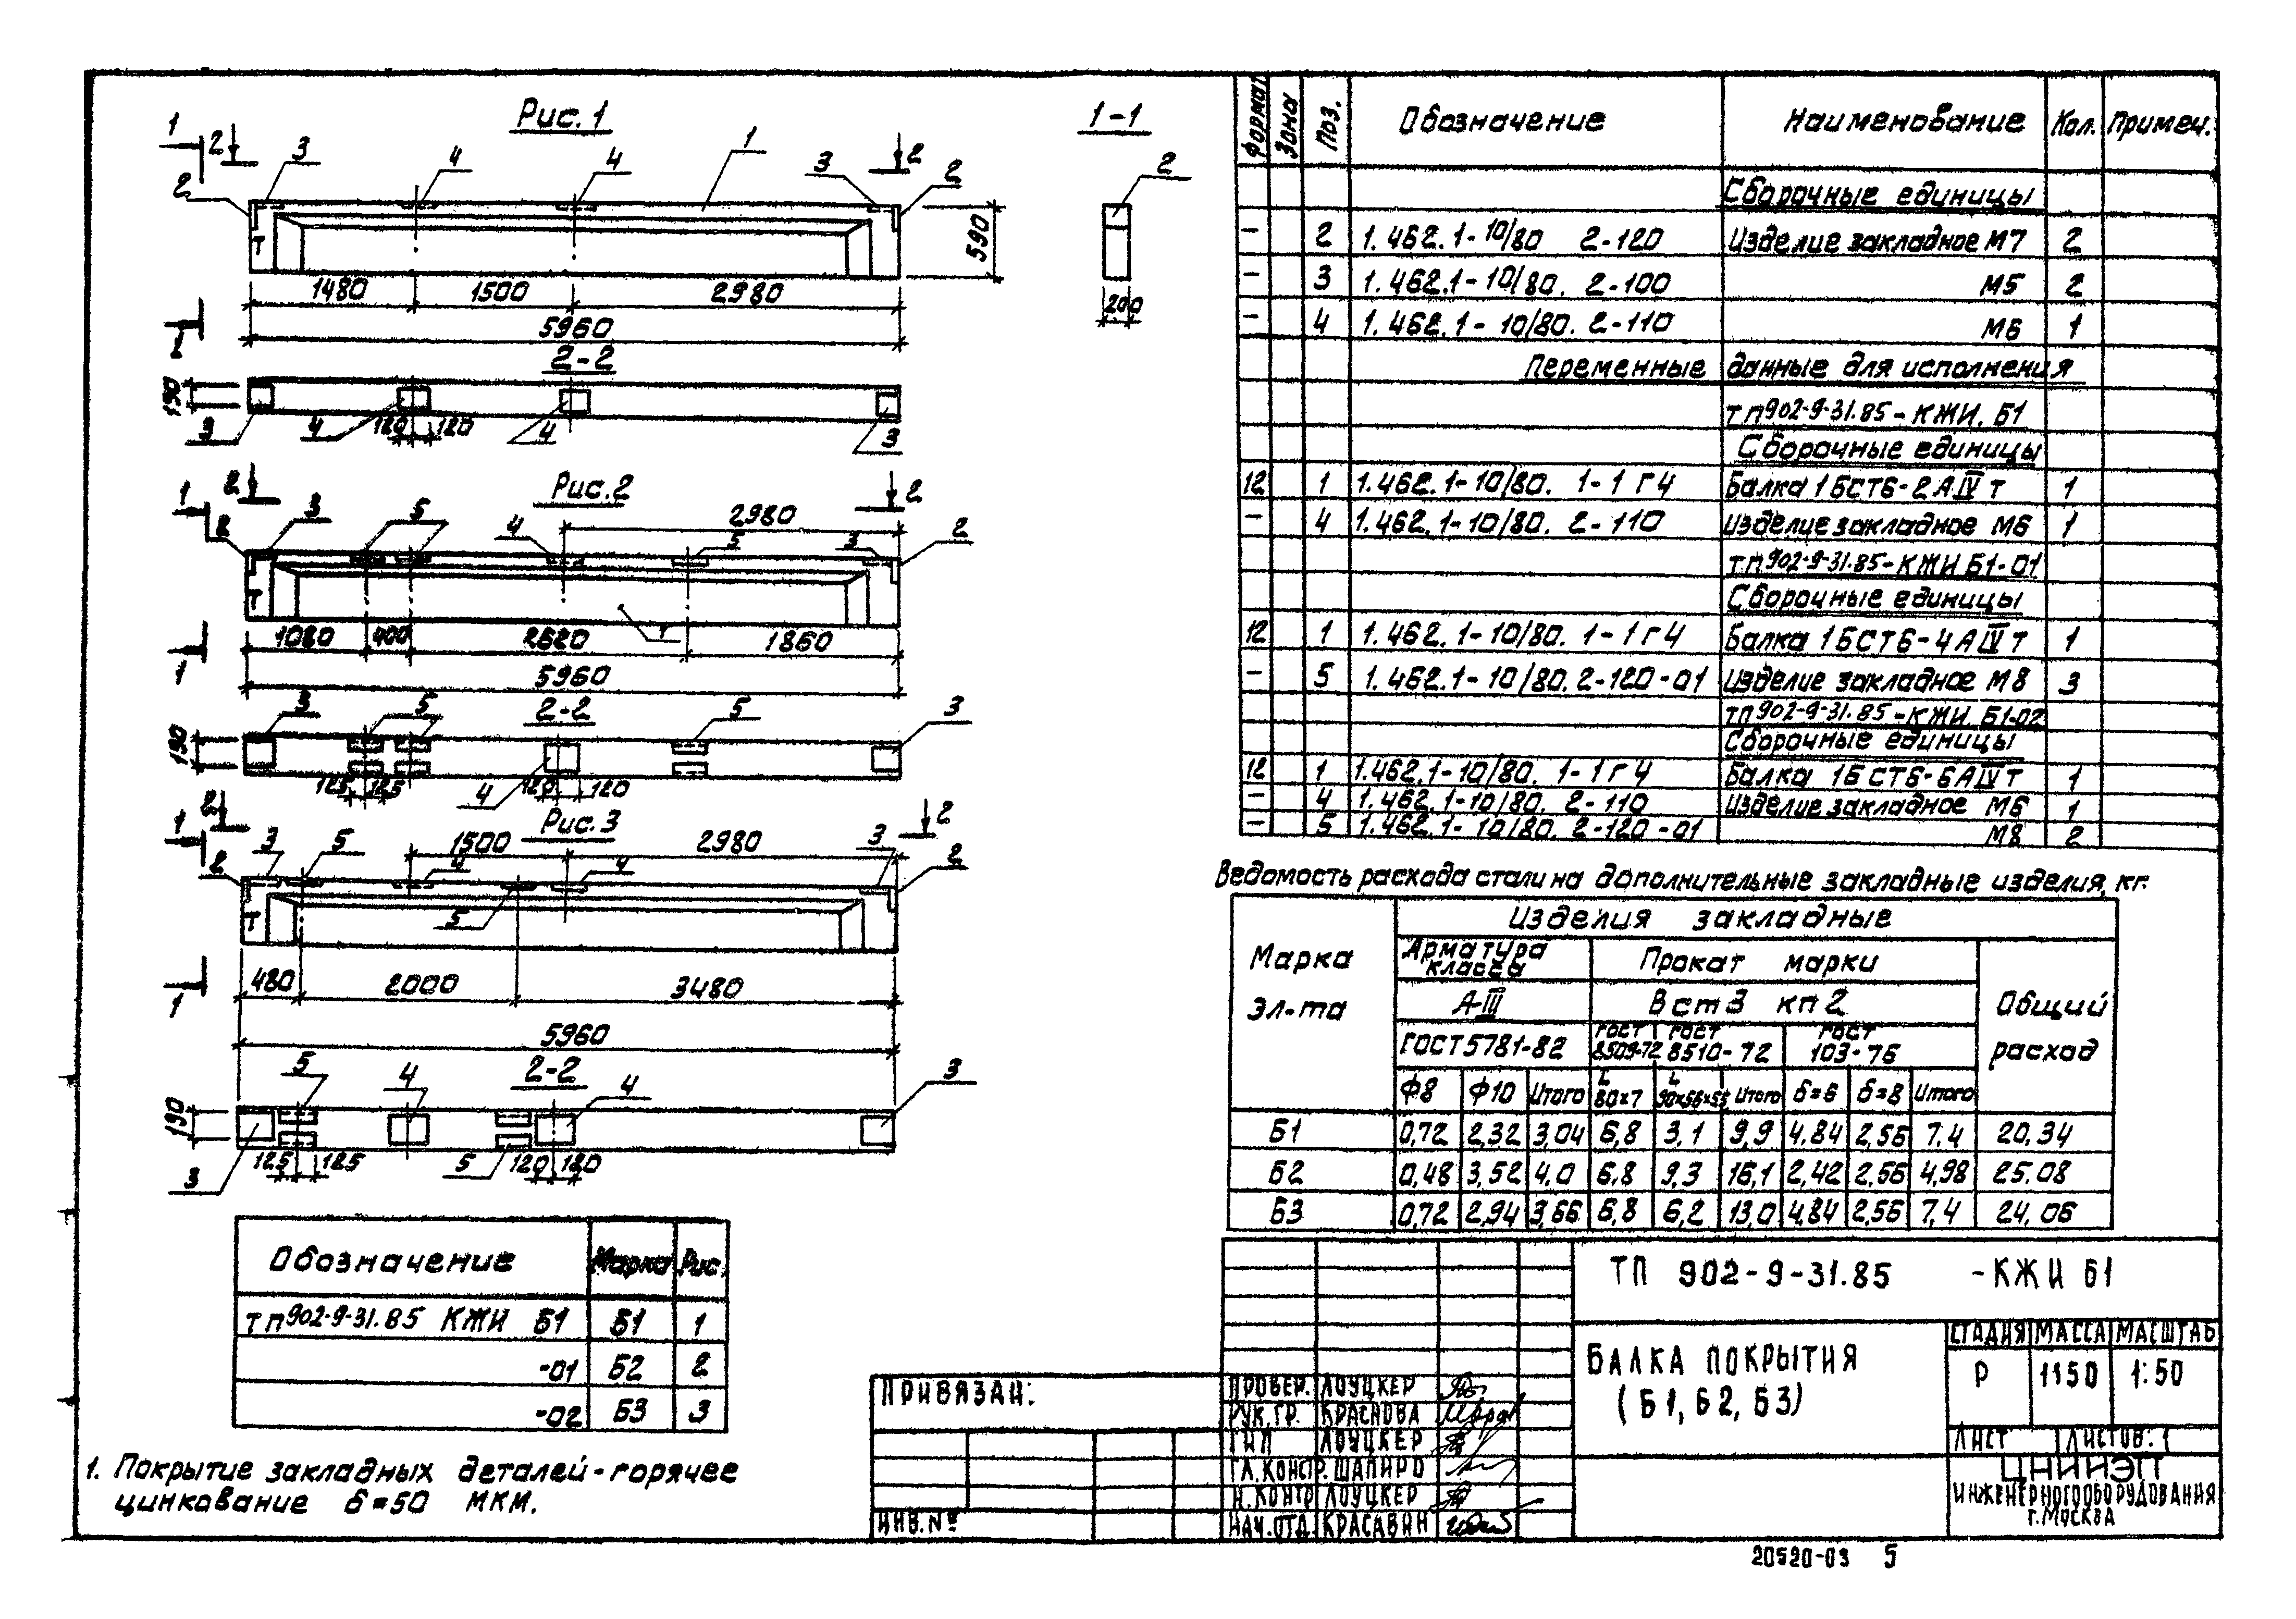 Рис. 1
1-1
1
2
3
4
4
1
3
2
2
2
2
Т
590
2
1480
1500
2980
200
5960
1
2-2
190
3
4
120
120
4
3
Рис. 2
1
2
3
5
4
2980
5
3
2
2
2
Т
1
1080
400
2620
1860
5960
1
2-2
3
5
5
3
190
125
125
4
120
120
Рис. 3
1
2
3
5
1500
4
4
2980
3
2
2
2
5
Т
480
2000
3480
1
5960
2-2
5
4
4
3
190
125
125
5
120
120
3
Обозначение Марка Рис.
ТП 902-9-31.85 КЖИ Б1 Б1 1
-01 Б2 2
-02 Б3 3
1. Покрытие закладных деталей - горячее
цинкование б=50 мкм.
Формат Зона Поз. Обозначение Наименование Кол. Примеч.
Сборочные единицы
– 2 1.462.1-10/80 2-120 Изделие закладное М7 2
– 3 1.462.1-10/80. 2-100 М5 2
– 4 1.462.1-10/80. 2-110 М6 1
Переменные данные для исполнения
ТП 902-9-31.85-КЖИ. Б1
Сборочные единицы
12 1 1.462.1-10/80. 1-1 Г4 Балка 1БСТ6-2АIVТ 1
– 4 1.462.1-10/80. 2-110 Изделие закладное М6 1
ТП 902-9-31.85-КЖИ Б1-01
Сборочные единицы
12 1 1.462.1-10/80. 1-1 Г4 Балка 1БСТ6-4АIVТ 1
– 5 1.462.1-10/80. 2-120-01 Изделие закладное М8 3
ТП 902-9-31.85-КЖИ. Б1-02
Сборочные единицы
12 1 1.462.1-10/80. 1-1 Г4 Балка 1БСТ6-6АIVТ 1
– 4 1.462.1-10/80. 2-110 Изделие закладное М6 1
– 5 1.462.1-10/80. 2-120-01 М8 2
Ведомость расхода стали на дополнительные закладные изделия, кг.
Марка эл-та
Изделия закладные
Арматура класса
Прокат марки
А-III
Вст3 кп2
Общий расход
ГОСТ 5781-82
ГОСТ 8509-72
ГОСТ 8510-72
ГОСТ 103-76
Ф8 Ф10 Итого L 80×7 L 90×56×5,5 Итого б=6 б=8 Итого
Б1 0,72 2,32 3,04 6,8 3,1 9,9 4,84 2,56 7,4 20,34
Б2 0,48 3,52 4,0 6,8 9,3 16,1 2,42 2,56 4,98 25.08
Б3 0,72 2,94 3,66 6,8 6,2 13,0 4,84 2,56 7,4 24,06
ТП 902-9-31.85 -КЖИ Б1
БАЛКА ПОКРЫТИЯ
(Б1, Б2, Б3)
СТАДИЯ МАССА МАСШТАБ
Р 1150 1:50
ЛИСТ ЛИСТОВ: 1
ЦНИИЭП
ИНЖЕНЕРНОГО ОБОРУДОВАНИЯ
г. МОСКВА
ПРИВЯЗАН:
ИНВ. №
ПРОВЕР. ЛОУЦКЕР
РУК. ГР. КРАСНОВА
ГИП ЛОУЦКЕР
ГЛ. КОНСТР. ШАПИРО
Н. КОНТР ЛОУЦКЕР
НАЧ. ОТД. КРАСАВИН
20520-03 5